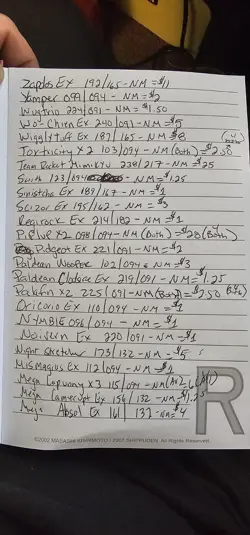 Zapdos Ex 192/165 - NM = $11
Yamper 099/094 - NM = $2
Wugtrio 224/091 - NM = $1.50
Wo-Chien Ex 240/091 - NM = $5
Wigglytuff Ex 187/165 - NM = $8
Toxtricity x2 103/094 - NM (Both) = $2.50
Team Rocket Mimikyu 238/217 - NM = $25
123/094 - NM = $1.25
Sinistcha Ex 189/167 - NM = $1
Scizor Ex 195/162 - NM = $2
Regirock Ex 214/182 - NM = $1
Piplup x2 098/094 - NM (Both) = $28 (Both)
Pidgeot Ex 221/091 - NM = $2
Paldean Wooper 102/094 NM = $3
Paldean Clodsire Ex 219/091 - NM = $1.25
x2 225/091 - NM (Both) = $2.50 (Both)
Oricorio Ex 110/094 - NM = $1
Nymble 096/094 - NM = $1
Noivern Ex 220/091 - NM = $1
Night Stretcher 173/132 - NM = $5
Mismagius Ex 112/094 - NM = $1
Mega Lopunny x3 115/094 - NM (All) = (All)
Mega Camerupt Ex 156/132 - NM = $1.25
Mega Absol Ex 161/132 - NM = $4
R
©2002 MASASHI KISHIMOTO / 2002 SHIPPUDEN All Rights Reserved.